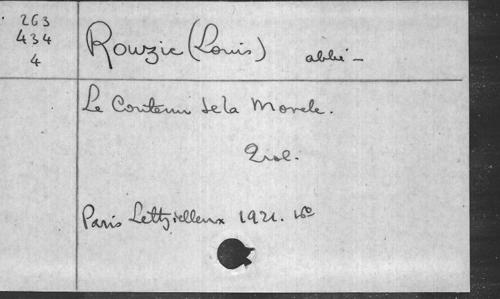 263
434
4
Rouzic (Louis) abbé -
Le Contenu de la Morale.
2 vol.
Paris Lethielleux 1921. 16º